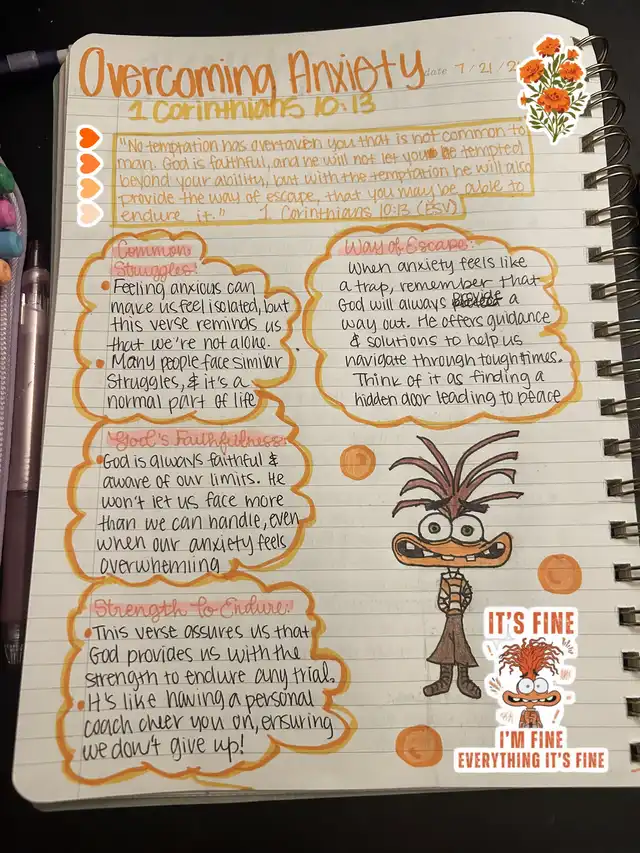 Overcoming Anxiety
date 7/21/2
1 Corinthians 10:13
"No temptation has overtaken you that is not common to
man. God is faithful, and he will not let you be tempted
beyond your ability, but with the temptation he will also
provide the way of escape, that you may be able to
endure it." 1 Corinthians 10:13 (ESV)
Common
Struggles:
Feeling anxious can
make us feel isolated, but
this verse reminds us
that we're not alone.
Many people face similar
struggles, & it's a
normal part of life
God's Faithfulness:
God is always faithful &
aware of our limits. He
won't let us face more
than we can handle, even
when our anxiety feels
overwhelming
Strength to Endure:
This verse assures us that
God provides us with the
strength to endure any trial.
It's like having a personal
coach cheer you on, ensuring
we don't give up!
Way of Escape:
When anxiety feels like
a trap, remember that
God will always a
way out. He offers guidance
& solutions to help us
navigate through tough times.
Think of it as finding a
hidden door leading to peace
IT'S FINE
I'M FINE
EVERYTHING IT'S FINE